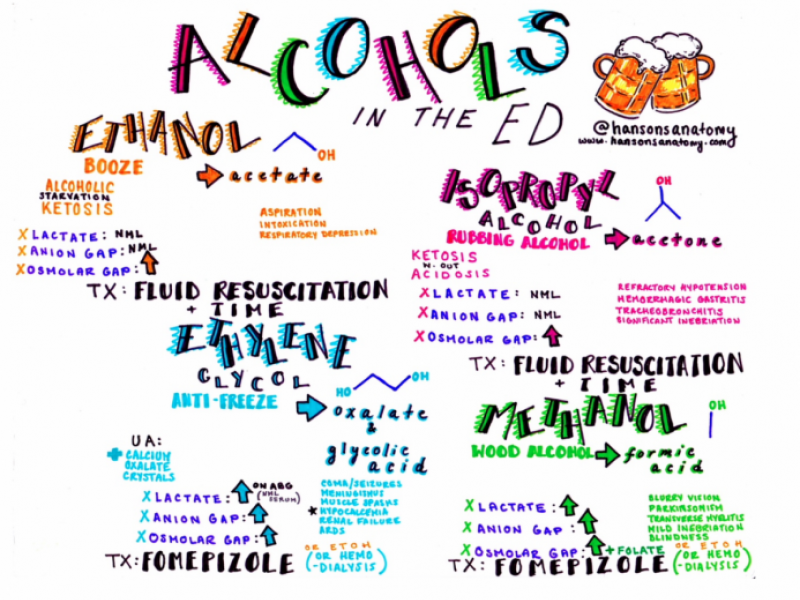 ALCOHOLS
IN THE ED
@hansonsanatomy
www.hansonsanatomy.com
ETHANOL
OH
BOOZE
acetate
ALCOHOLIC
STARVATION
KETOSIS
ASPIRATION
INTOXICATION
RESPIRATORY DEPRESSION
X LACTATE: NML
X ANION GAP: NML
X OSMOLAR GAP:
TX: FLUID RESUSCITATION
+ TIME
ISOPROPYL
OH
ALCOHOL
RUBBING ALCOHOL
acetone
KETOSIS
W-OUT
ACIDOSIS
REFRACTORY HYPOTENSION
HEMORRHAGIC GASTRITIS
TRACHEOBRONCHITIS
SIGNIFICANT INEBRIATION
X LACTATE: NML
X ANION GAP: NML
X OSMOLAR GAP:
TX: FLUID RESUSCITATION
+ TIME
ETHYLENE
GLYCOL
HO OH
ANTI-FREEZE
oxalate
&
glycolic
acid
UA:
+ CALCIUM
OXALATE
CRYSTALS
COMA/SEIZURES
MENINGISMUS
MUSCLE SPASMS
* HYPOCALCEMIA
RENAL FAILURE
ARDS
X LACTATE: ON ABG
(NML SERUM)
X ANION GAP:
X OSMOLAR GAP:
TX: FOMEPIZOLE OR ETOH
(OR HEMO
-DIALYSIS)
METHANOL
OH
WOOD ALCOHOL
formic
acid
BLURRY VISION
PARKINSONISM
TRANSVERSE MYELITIS
MILD INEBRIATION
BLINDNESS
X LACTATE:
X ANION GAP:
X OSMOLAR GAP: + FOLATE
TX: FOMEPIZOLE OR ETOH
(OR HEMO
-DIALYSIS)